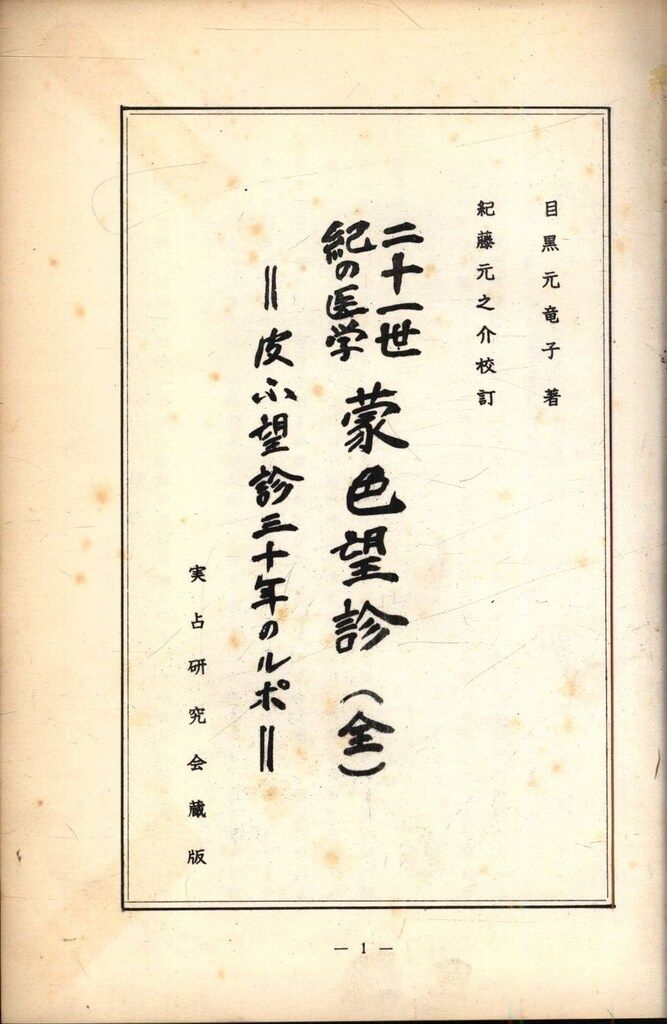 目黒元竜子著
紀藤元之介校訂
二十一世
紀の医学
蒙色望診（全）
＝皮ふ望診三十年のルポ＝
実占研究会蔵版
— 1 —